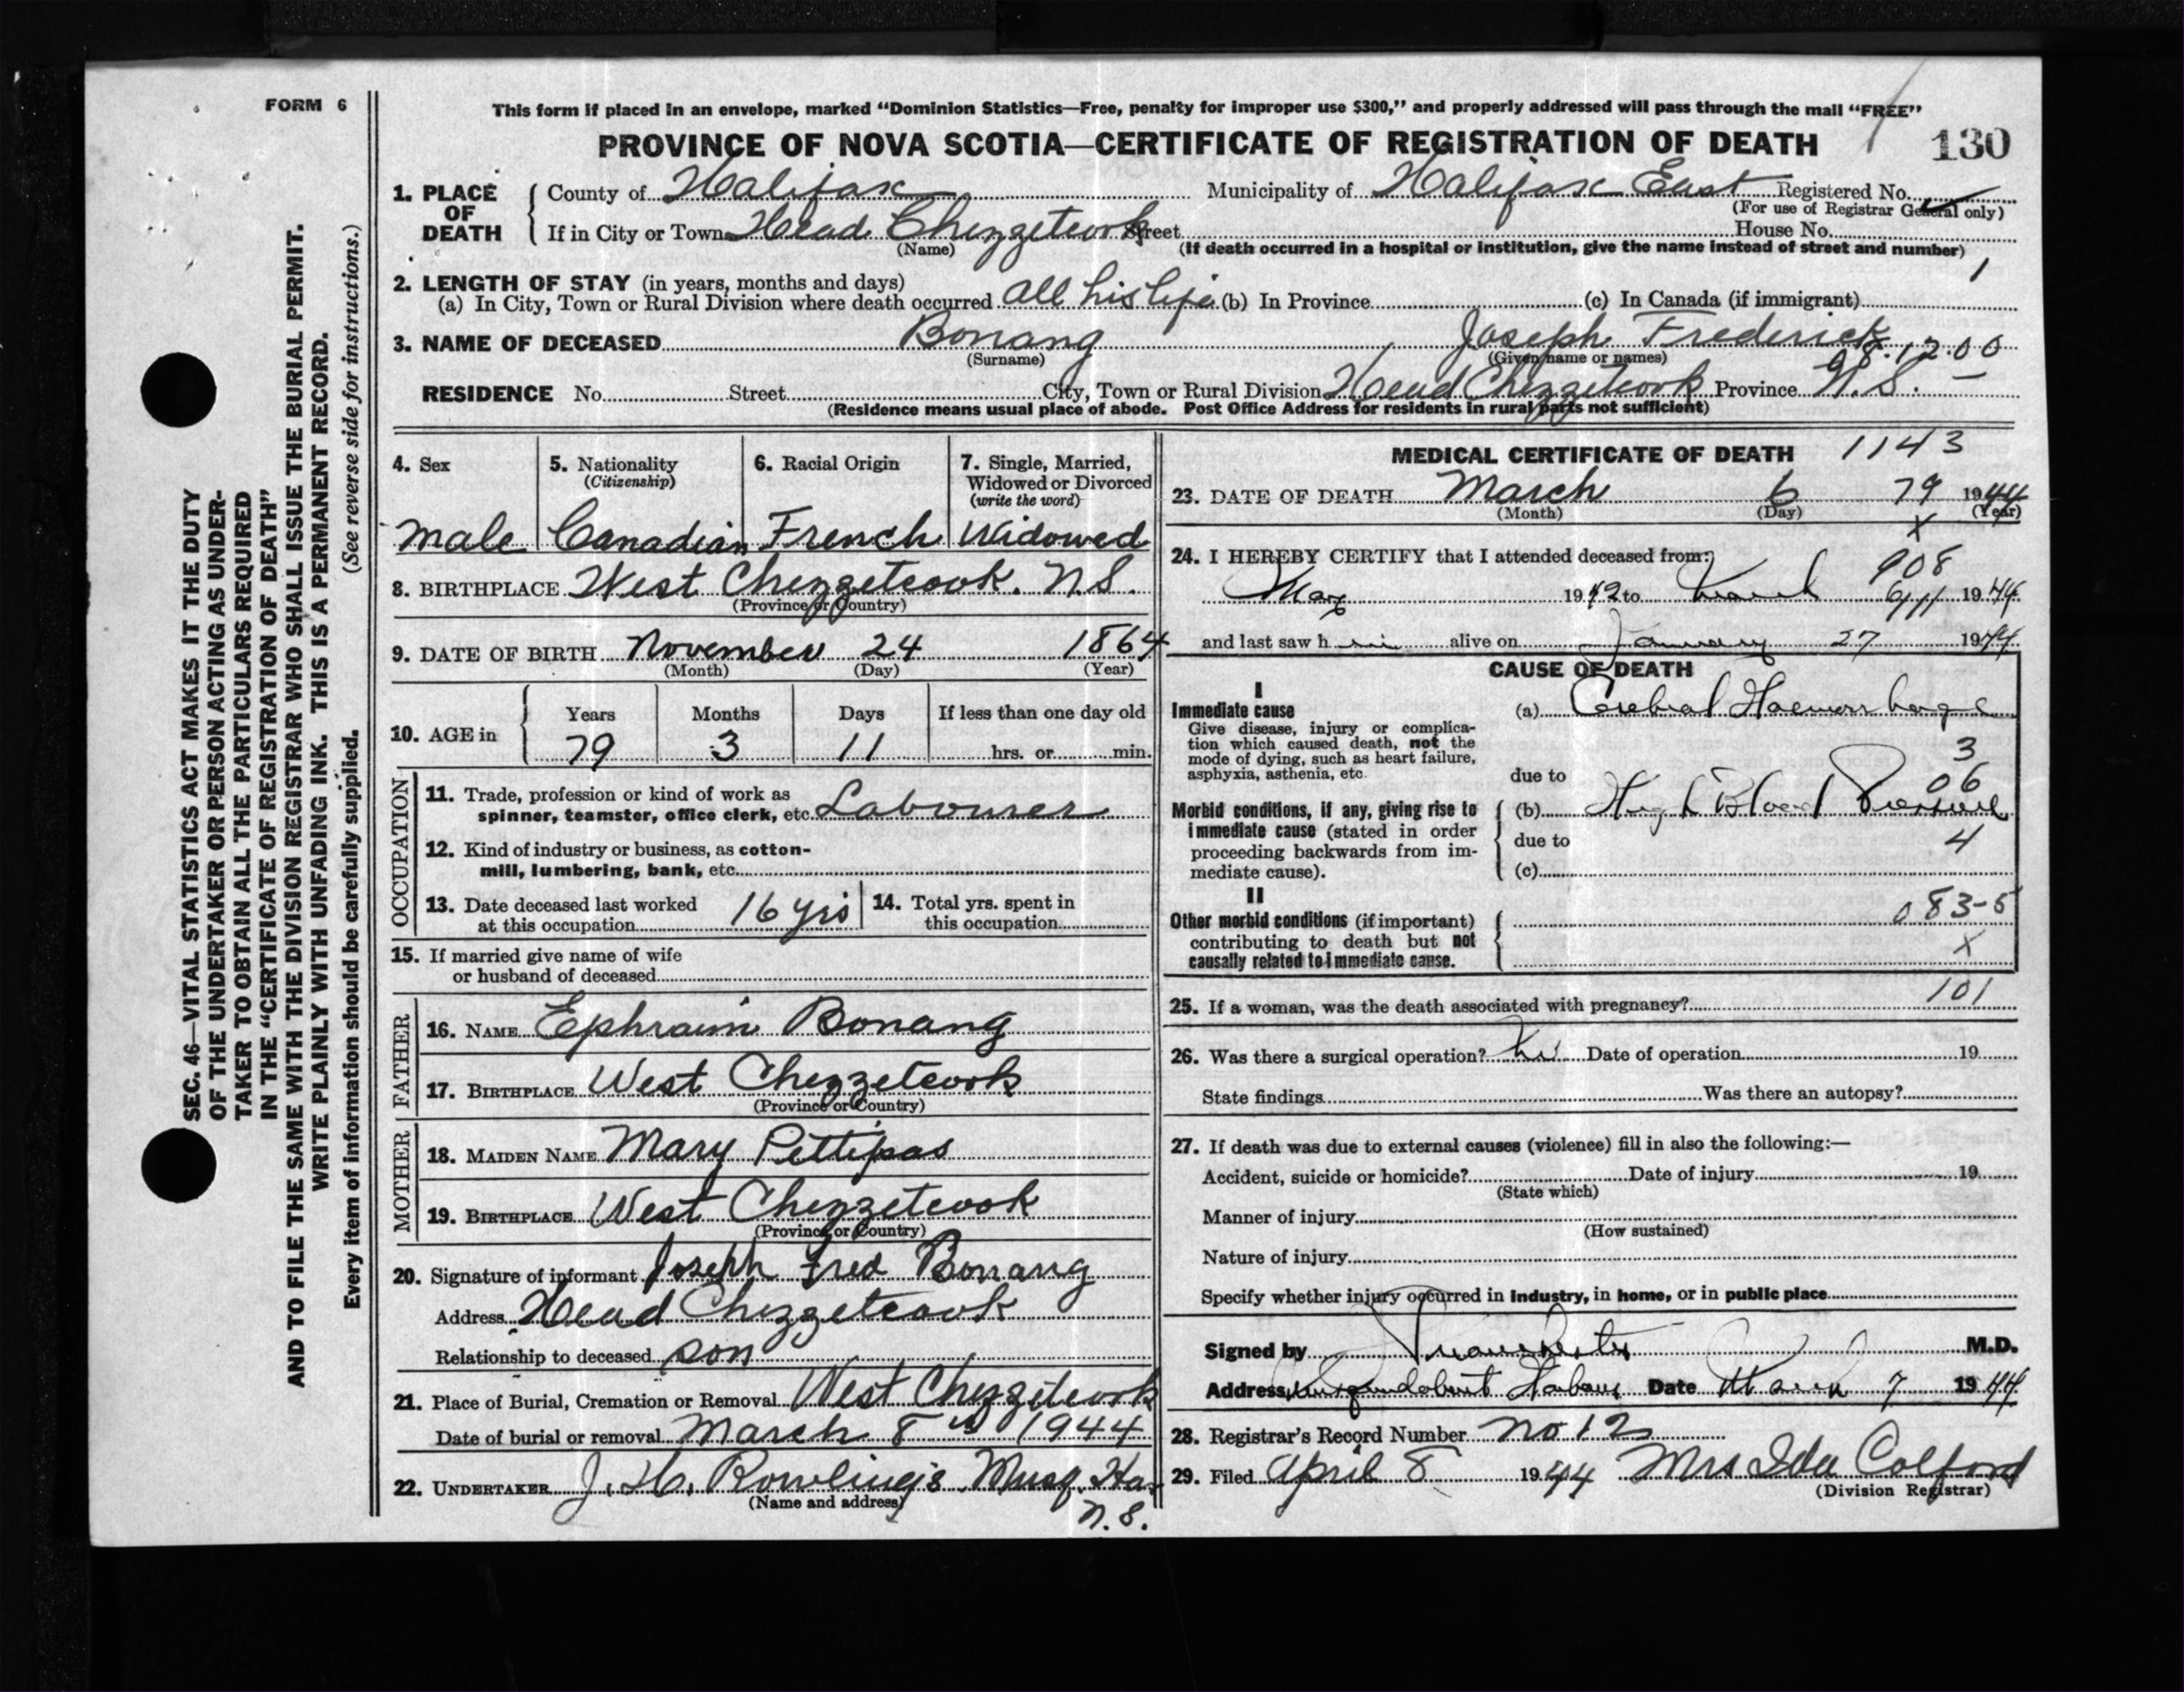 FORM 6
This form if placed in an envelope, marked "Dominion Statistics—Free, penalty for improper use $300," and properly addressed will pass through the mail "FREE"
PROVINCE OF NOVA SCOTIA—CERTIFICATE OF REGISTRATION OF DEATH 130
1. PLACE OF DEATH County of Halifax Municipality of Halifax East Registered No.
(For use of Registrar General only)
If in City or Town Head Chezzetcook Street House No.
(Name) (If death occurred in a hospital or institution, give the name instead of street and number)
2. LENGTH OF STAY (in years, months and days) 1
(a) In City, Town or Rural Division where death occurred All his life (b) In Province (c) In Canada (if immigrant)
3. NAME OF DECEASED Bonang Joseph Frederick
(Surname) (Given name or names) 98.12.00
RESIDENCE No. Street City, Town or Rural Division Head Chezzetcook Province N.S.
(Residence means usual place of abode. Post Office Address for residents in rural parts not sufficient)
SEC. 46—VITAL STATISTICS ACT MAKES IT THE DUTY
OF THE UNDERTAKER OR PERSON ACTING AS UNDER-
TAKER TO OBTAIN ALL THE PARTICULARS REQUIRED
IN THE "CERTIFICATE OF REGISTRATION OF DEATH"
AND TO FILE THE SAME WITH THE DIVISION REGISTRAR WHO SHALL ISSUE THE BURIAL PERMIT.
WRITE PLAINLY WITH UNFADING INK. THIS IS A PERMANENT RECORD.
Every item of information should be carefully supplied. (See reverse side for instructions.)
4. Sex 5. Nationality (Citizenship) 6. Racial Origin 7. Single, Married, Widowed or Divorced (write the word)
Male Canadian French Widowed
8. BIRTHPLACE West Chezzetcook. N.S.
(Province or Country)
9. DATE OF BIRTH November 24 1864
(Month) (Day) (Year)
10. AGE in Years Months Days If less than one day old
79 3 11 hrs. or min.
OCCUPATION
11. Trade, profession or kind of work as
spinner, teamster, office clerk, etc. Labourer
12. Kind of industry or business, as cotton-
mill, lumbering, bank, etc.
13. Date deceased last worked at this occupation 16 yrs 14. Total yrs. spent in this occupation
15. If married give name of wife
or husband of deceased
FATHER
16. NAME Ephraim Bonang
17. BIRTHPLACE West Chezzetcook
(Province or Country)
MOTHER
18. MAIDEN NAME Mary Pettipas
19. BIRTHPLACE West Chezzetcook
(Province or Country)
20. Signature of informant Joseph Fred Bonang
Address Head Chezzetcook
Relationship to deceased son
21. Place of Burial, Cremation or Removal West Chezzetcook
Date of burial or removal March 8th 1944
22. UNDERTAKER J. H. Rowlings Musq. Har
(Name and address) N.S.
MEDICAL CERTIFICATE OF DEATH 1143
23. DATE OF DEATH March 6 79 1944
(Month) (Day) (Year)
X
24. I HEREBY CERTIFY that I attended deceased from:
908
May 1942 to March 1944
and last saw h im alive on January 27 1944
CAUSE OF DEATH
I
Immediate cause (a) Cerebral Haemorrhage
Give disease, injury or complica-
tion which caused death, not the
mode of dying, such as heart failure,
asphyxia, asthenia, etc.
3
due to 06
Morbid conditions, if any, giving rise to (b) High Blood Pressure
immediate cause (stated in order
proceeding backwards from im-
mediate cause).
due to 4
(c)
II
083-5
Other morbid conditions (if important)
contributing to death but not
causally related to immediate cause.
X
101
25. If a woman, was the death associated with pregnancy?
26. Was there a surgical operation? No Date of operation 19
State findings Was there an autopsy?
27. If death was due to external causes (violence) fill in also the following:—
Accident, suicide or homicide? Date of injury 19
(State which)
Manner of injury
(How sustained)
Nature of injury
Specify whether injury occurred in industry, in home, or in public place
Signed by M.D.
Address Musquodoboit Harbour Date March 7 1944
28. Registrar's Record Number No 12
29. Filed April 8 1944 Mrs Ida Colford
(Division Registrar)